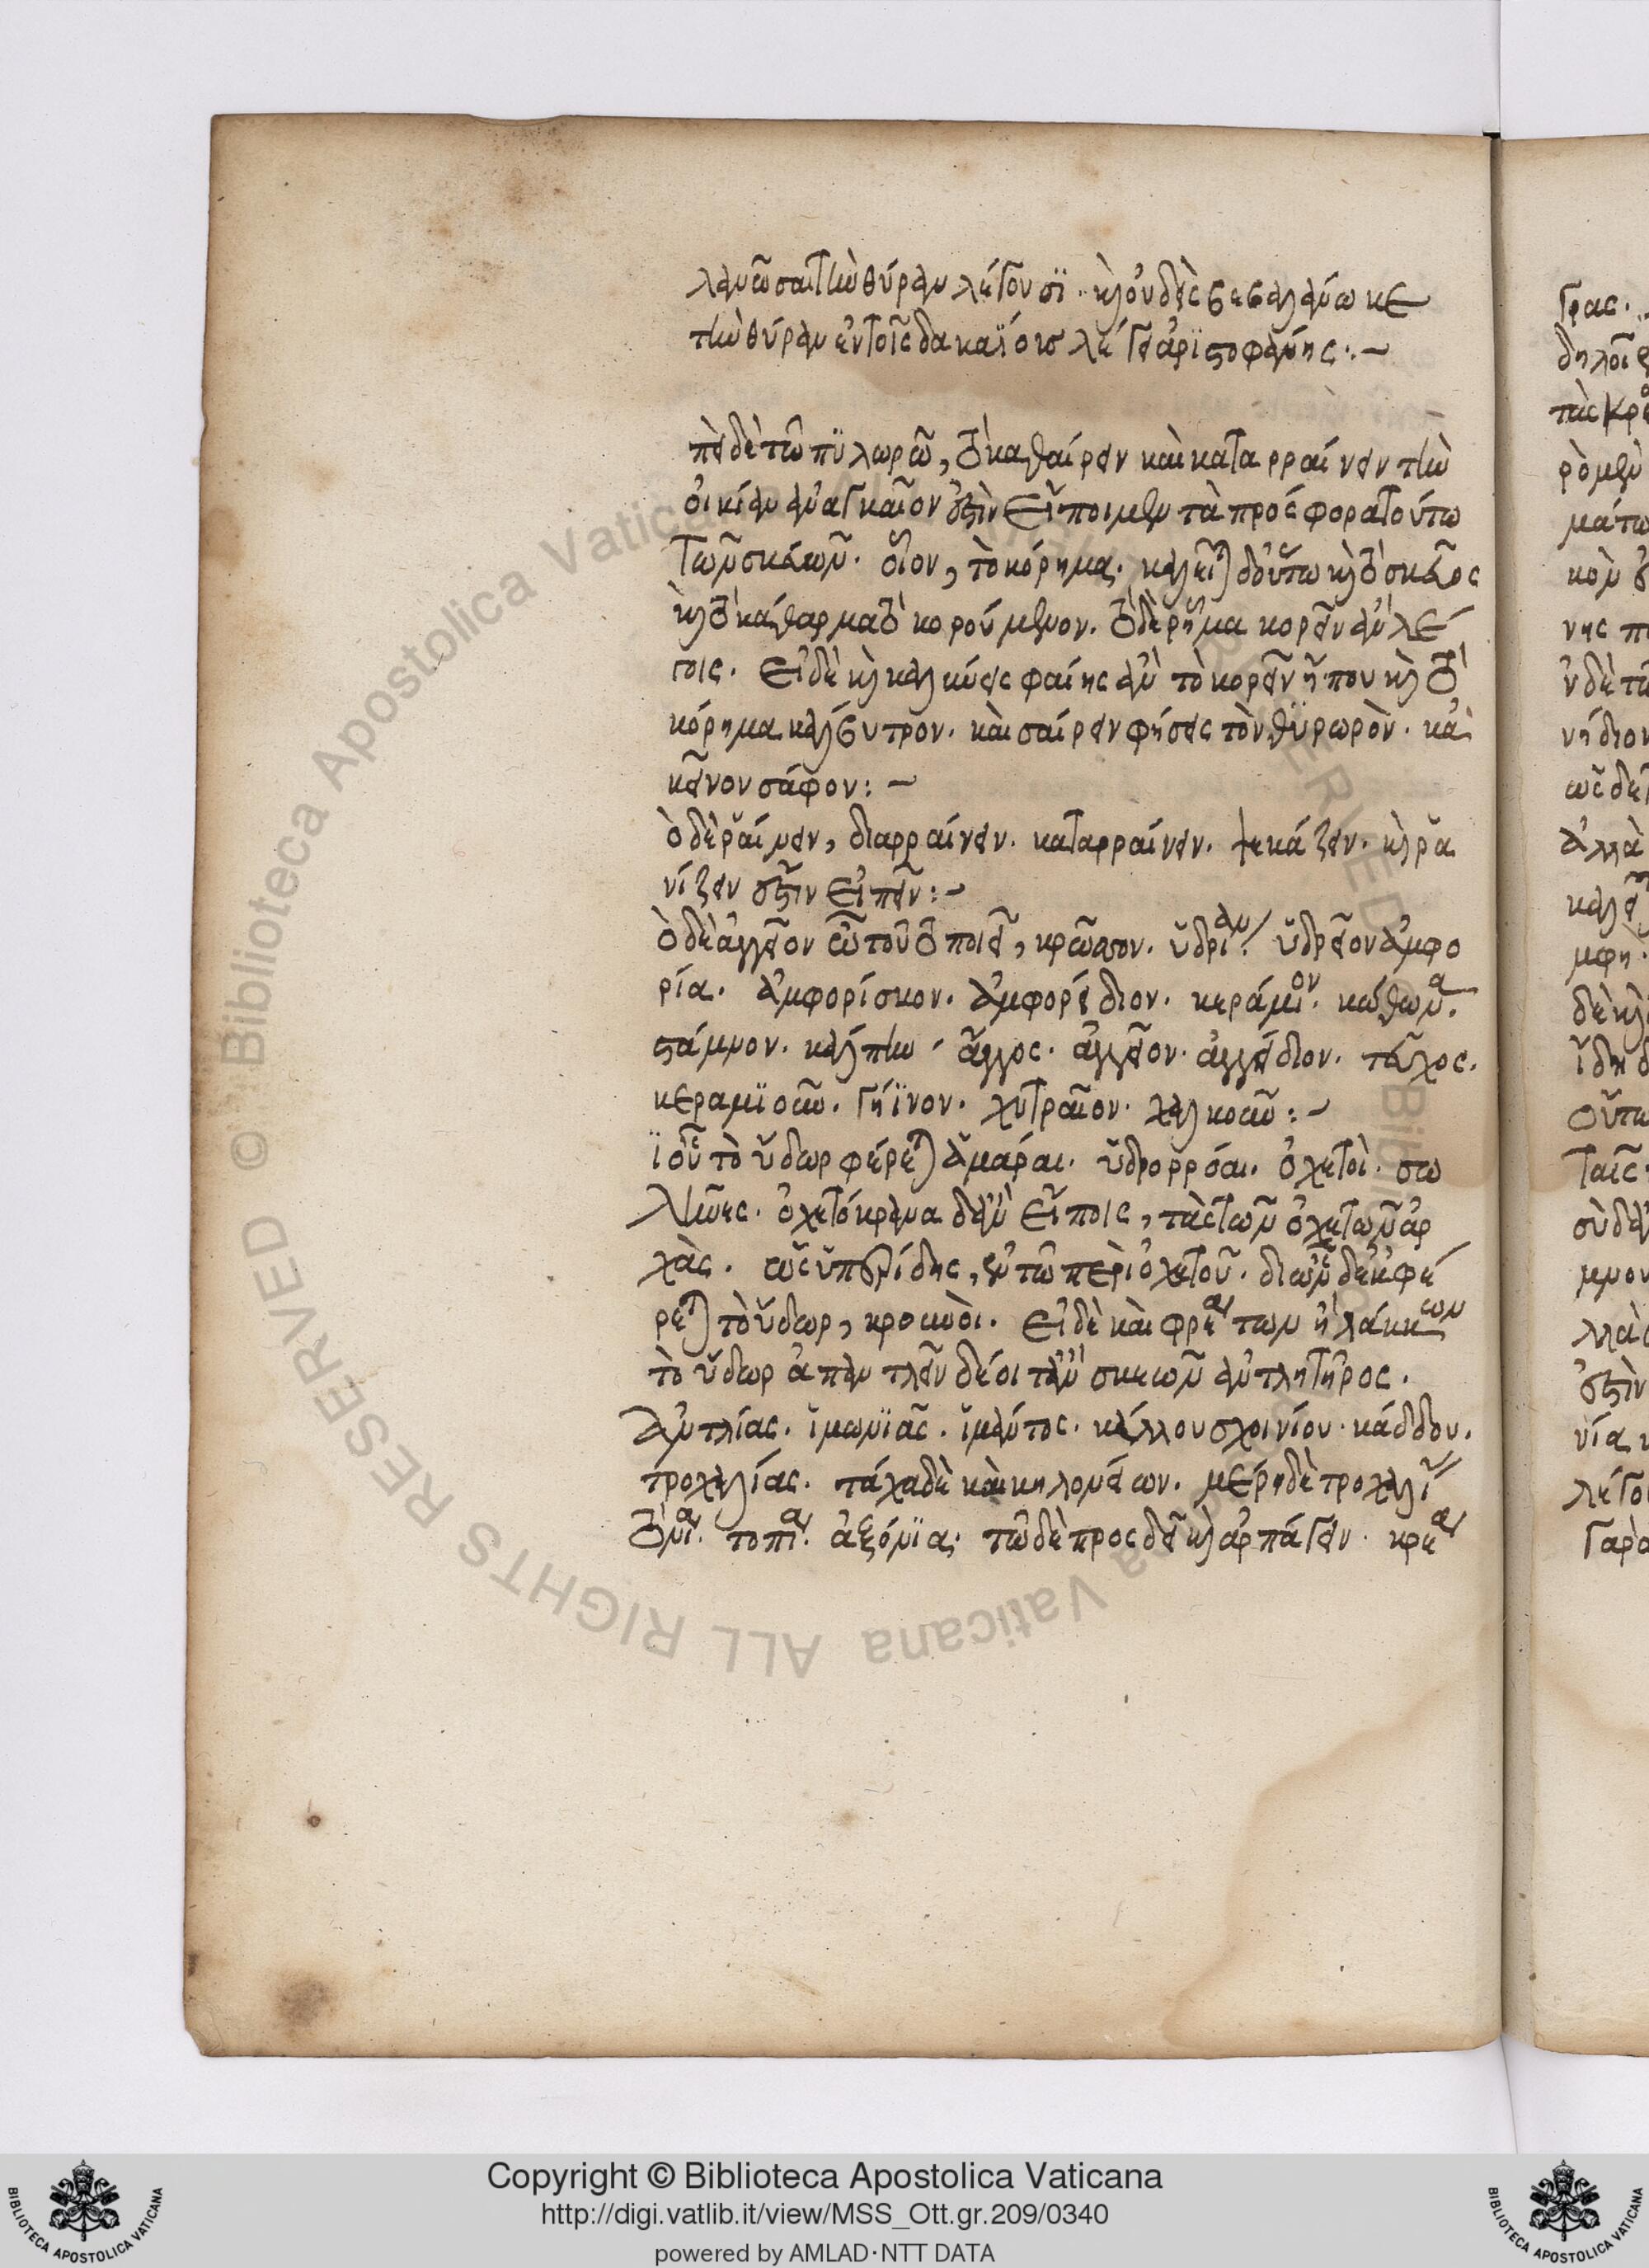 λανῶσαι τὴν θύραν λέγουσϊ. καὶ οὐδεὶς βεβαλάνωκε
τὴν θύραν ἐν τοῖς δαναΐσιν λέγει ἀρϊστοφάνης:~
πεὶ δὲ τῶ πϋλωρῶ, τὸ καθαίρειν καὶ καταρραίνειν τὴν
οἰκίαν ἀναγκαῖον ἐστὶν εἴποιμεν τὰ πρόσφορα τούτω
τῶν σκευῶν. οἷον, τὸ κόρημα. καλεῖται δ' οὕτω καὶ τὸ σκεῦος
καὶ τὸ κάθαρμα τὸ κορούμενον. τὸ δὲ ῥῆμα κορεῖν ἂν λέ
γοις. εἰ δὲ καὶ καλλύνειν φαίης ἂν τὸ κορεῖν ἤπου καὶ τὸ
κόρημα κάλλυντρον. καὶ σαίρειν φήσεις τὸν θϋρωρὸν. κἀ
κεῖνον σάρον:~
τὸ δὲ ῥαίνειν, διαρραίνειν. καταρραίνειν. ψεκάζειν. καὶ ῥα
νίζειν ἔστιν εἰπεῖν:~
τὸ δὲ ἀγγεῖον ὧ τοῦτο ποιεῖ, κρωσσὸν. ὑδρίαν. ὑδρεῖον ἀμφο
ρέα. ἀμφορίσκον. ἀμφορείδιον. κεράμιον. κώθωνα.
στάμνον. κάλπιν. ἄγγος. ἀγγεῖον. ἀγγείδιον. τεῦχος.
κεραμϊοῦν. γήϊνον. χυτραῖον. χαλκοῦν:~
δι' οὗ τὸ ὕδωρ φέρεται ἀμάραι. ὑδρορρόαι. ὀχετοὶ. σω
λῆνες. ὀχετόκρανα δ' ἂν εἴποις, τὰς τῶν ὀχετῶν ἀρ
χὰς. ὡς ὑπερίδης, ἐν τῶ περὶ ὀχετοῦ. δι' ὧν δ' ἐκφέ
ρεται τὸ ὕδωρ, κρουνοὶ. εἰ δὲ καὶ φρεάτων ἢ λάκκων
τὸ ὕδωρ ἀπαντλεῖν δέοιτ' ἂν σκευῶν ἀντλητῆρος.
ἀντλίας. ἱμωνϊᾶς. ἱμάντος. κάλου σχοινίου. κάδδου.
τροχιλίας. τάχα δὲ καὶ κηλονείων. μέρη δὲ τροχιλίας
τόνια. τόπια. ἀξόνϊα. τῶ δὲ προσδεῖ καὶ ἁρπάγειν. κρεά